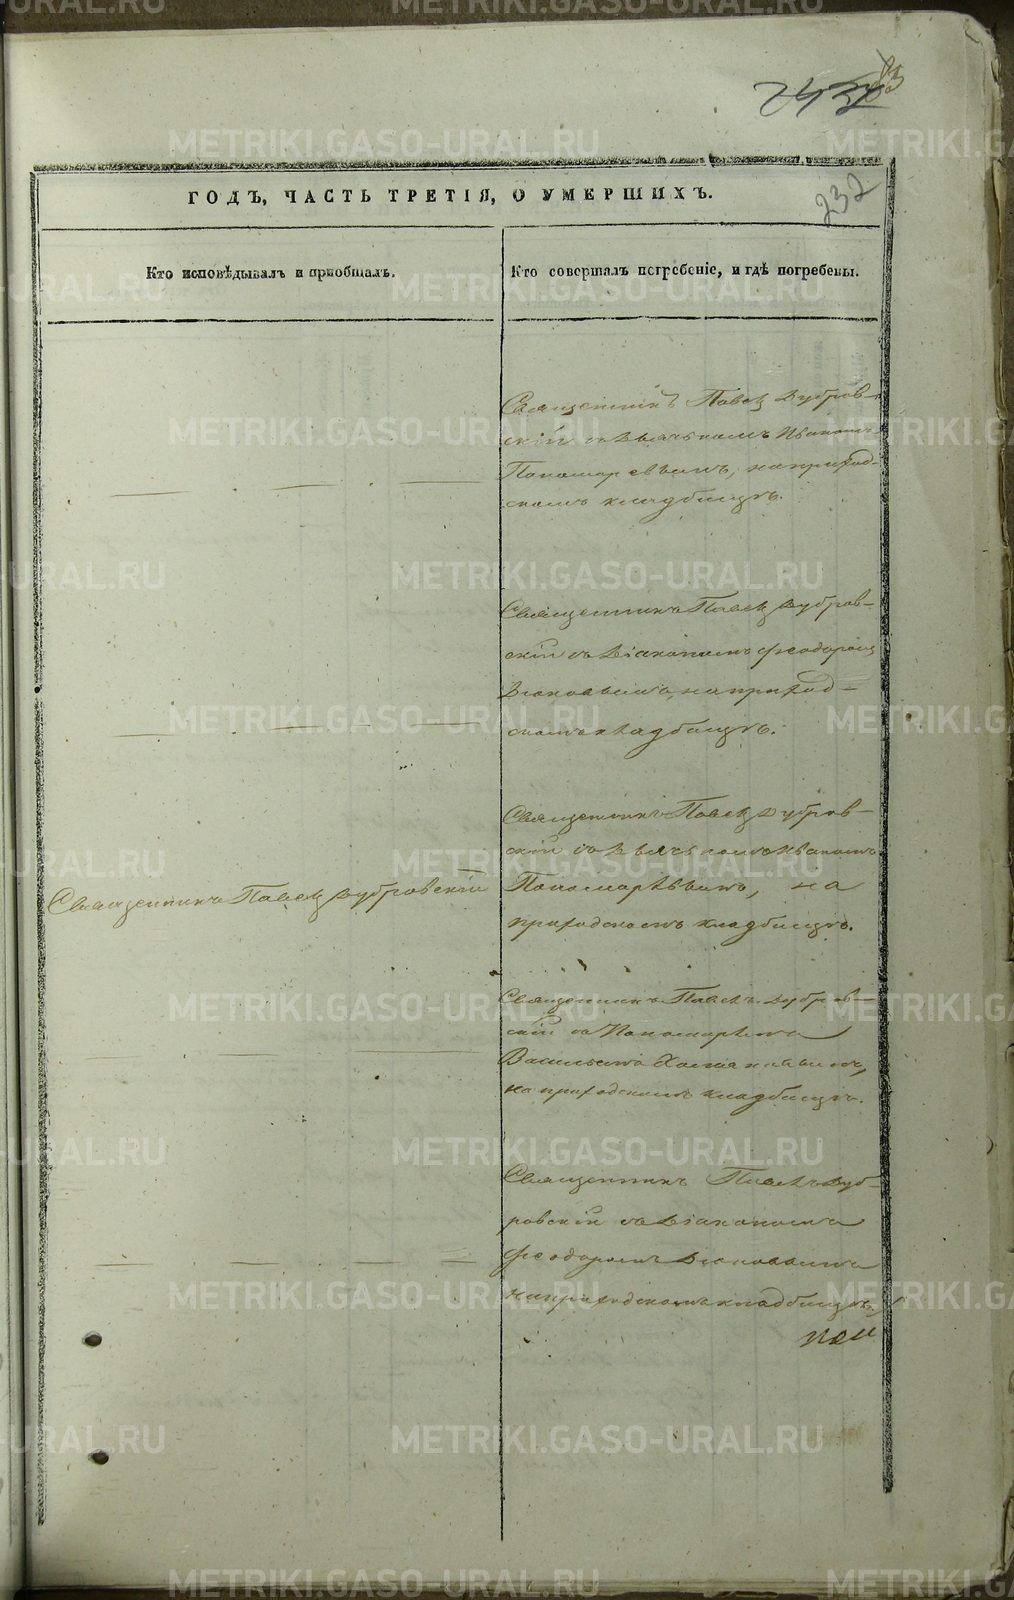 83
232
ГОДЪ, ЧАСТЬ ТРЕТІЯ, О УМЕРШИХЪ.
Кто исповѣдывалъ и пріобщалъ.
Кто совершалъ погребеніе, и гдѣ погребены.
Священникъ Павелъ Дубров-
скій съ Дьячькомъ Иваномъ
Пономаревымъ, на приход-
скомъ кладбищѣ.
Священникъ Павелъ Дубров-
скій съ Діакономъ Феодоромъ
на приход-
скомъ кладбищѣ.
Священникъ Павелъ Дубров-
скій съ Дьячькомъ Иваномъ
Пономарѣвымъ, на
приходскомъ кладбищѣ.
Священникъ Павелъ Дубровскій
Священникъ Павелъ Дубров-
скій съ Пономарѣмъ
Васильемъ
на приходскомъ кладбищѣ.
Священникъ Павелъ Дуб-
ровскій съ Діакономъ
Феодоромъ
на приходскомъ кладбищѣ.
METRIKI.GASO-URAL.RU